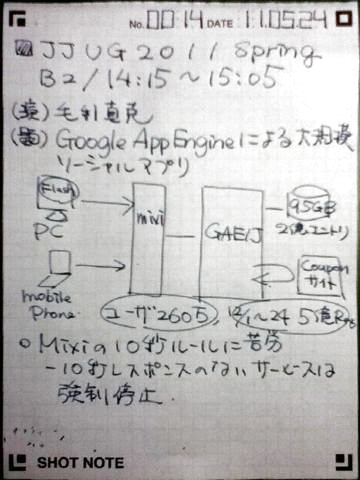 No. 00:14 DATE 11.05.24
JJUG 2011 Spring
B2/14:15~15:05
(演) 毛利直克
(題) Google App Engineによる大規模
ソーシャルアプリ
Flash
PC
mixi
GAE/J
95GB
2億エントリ
mobile
Phone
Coupon
サイト
ユーザ260万, 12/1~24 5億Req
○ Mixiの10秒ルールに苦労
-10秒レスポンスのないサービスは
強制停止.
SHOT NOTE